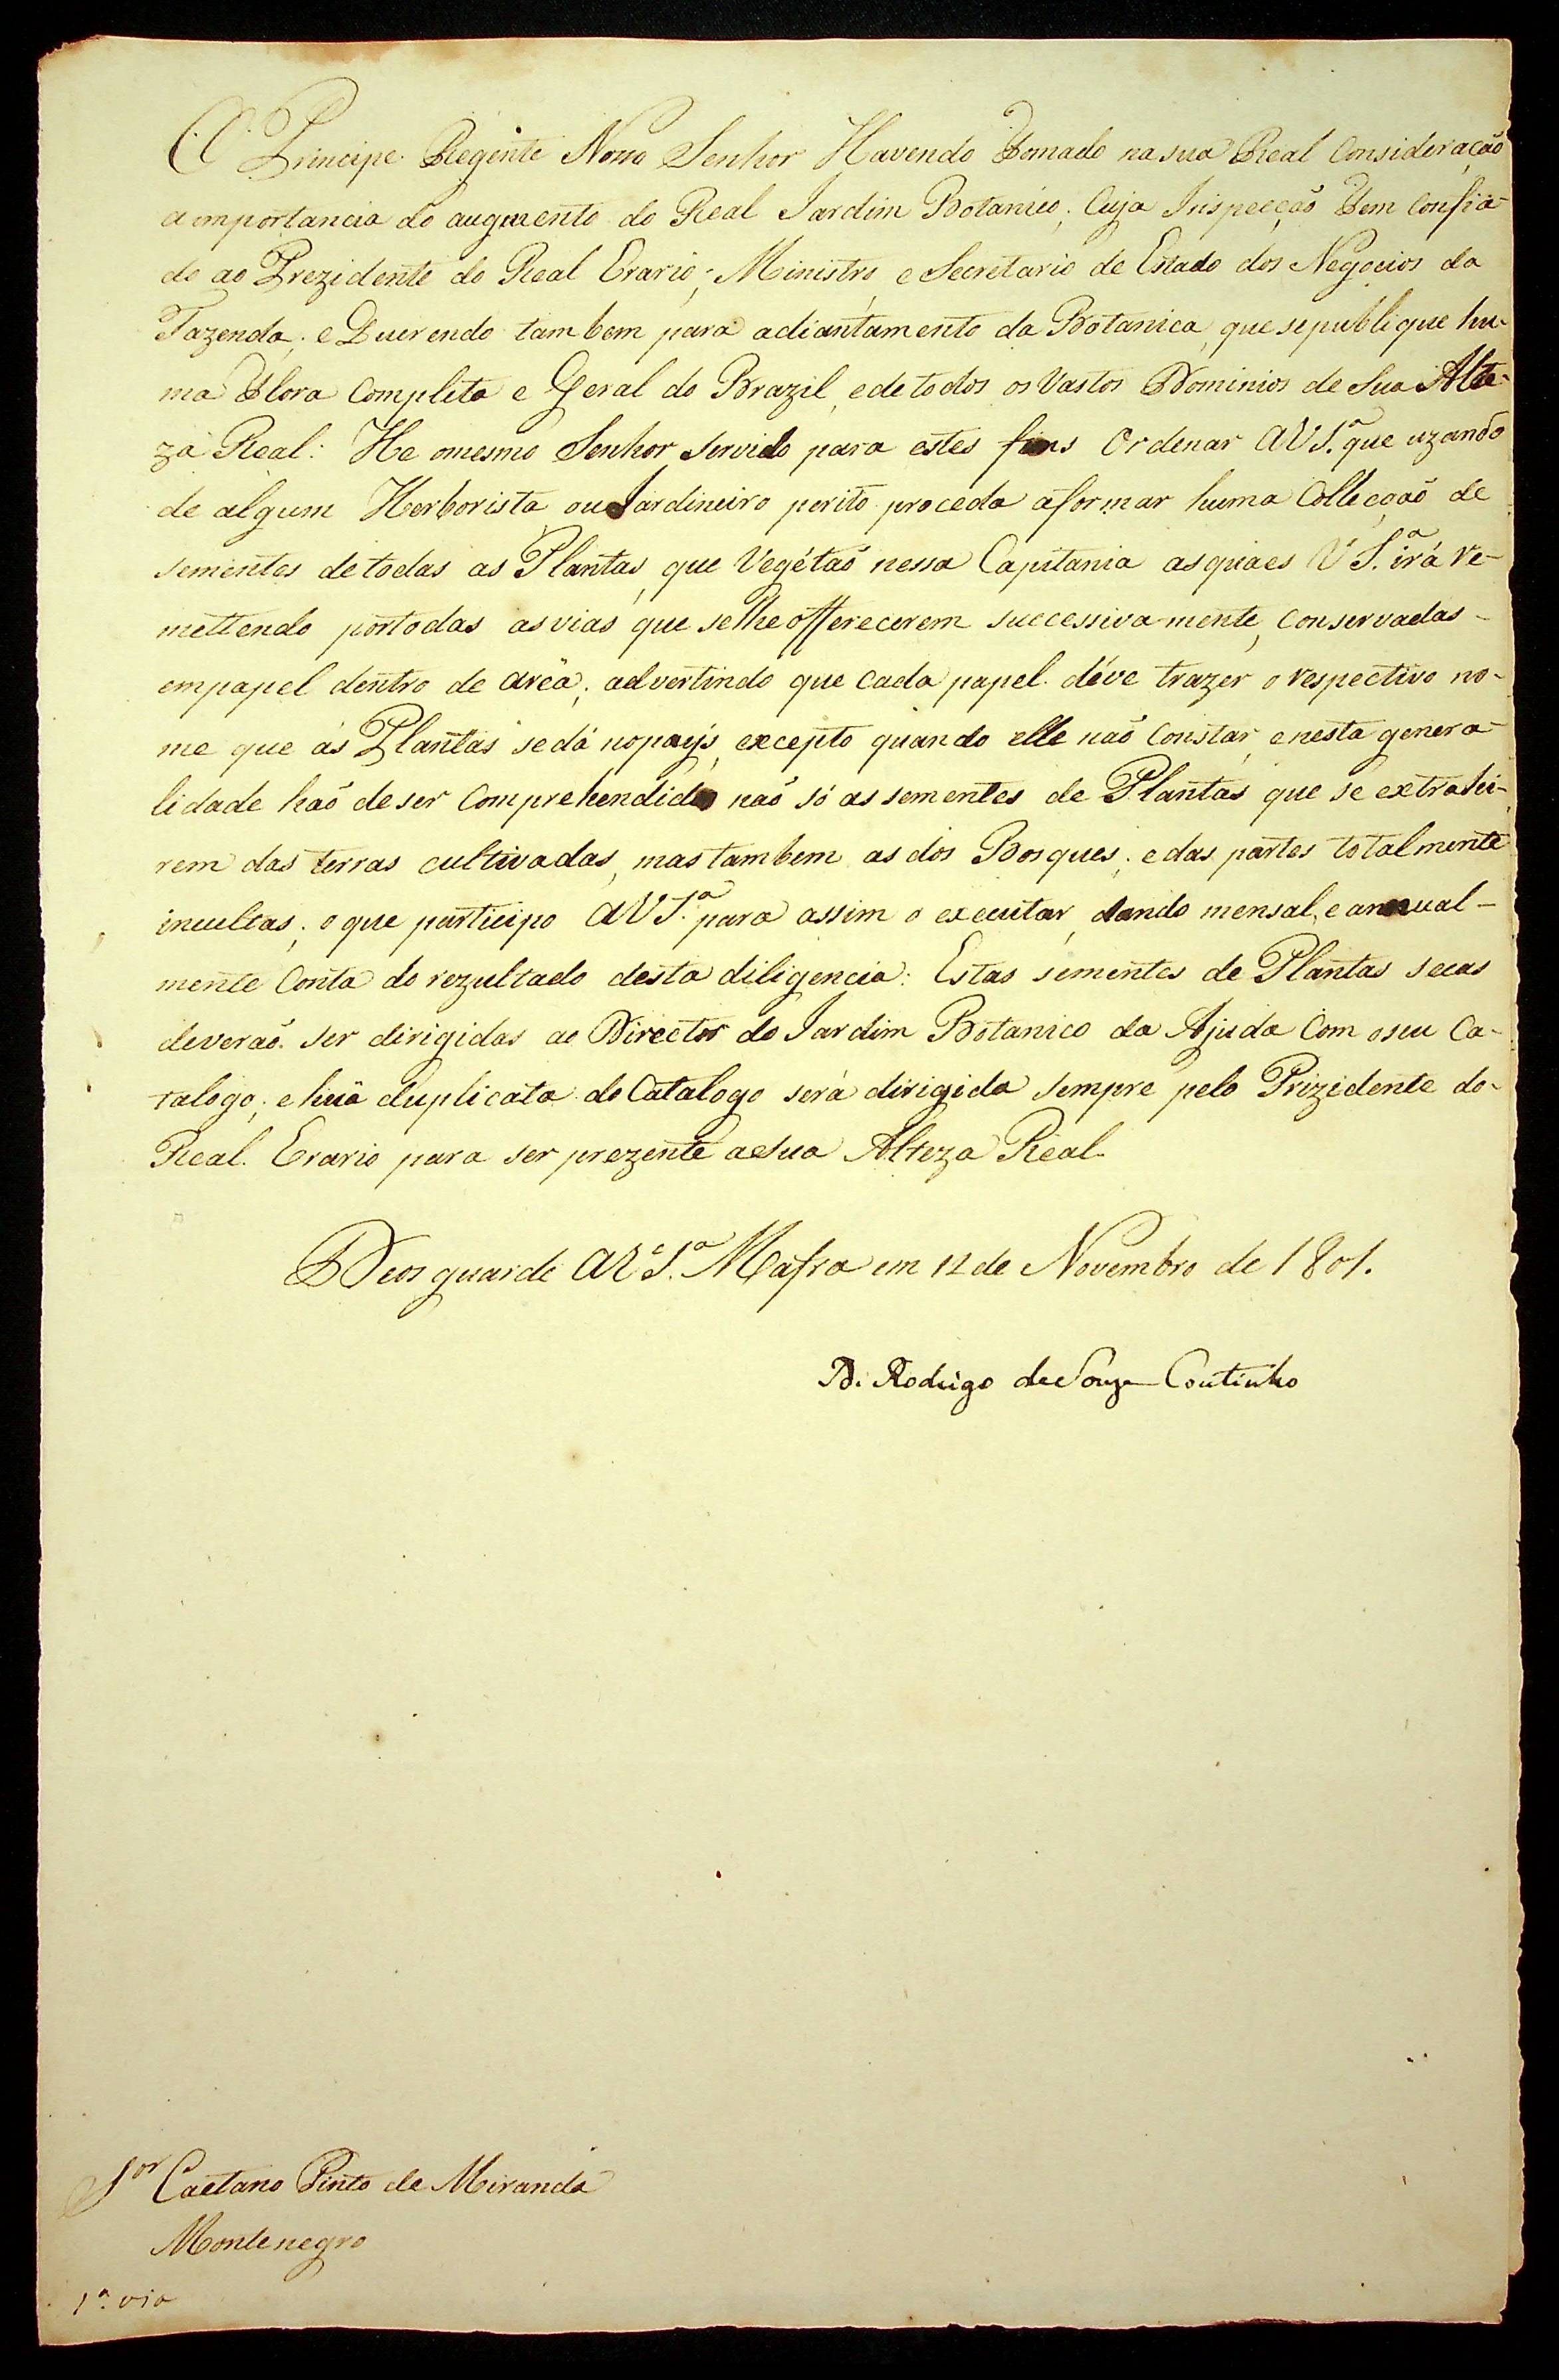 O Principe Regente Nosso Senhor Havendo Tomado na sua Real Consideração
a importancia do augmento do Real Jardim Botanico, Cuja Inspecçaõ Tem Confia-
do ao Prezidente do Real Erario, Ministro e Secretario de Estado dos Negocios da
Fazenda; e Querendo tambem para adiantamento da Botanica, que se publique hu-
ma Flora Completa e Geral do Brazil, e de todos os Vastos Dominios de Sua Alte-
za Real: He o mesmo Senhor servido para estes fins Ordenar a V S.ª que uzando
de algum Herborista ou Jardineiro perito proceda a formar huma Collecçaõ de
sementes de todas as Plantas, que Vegétaõ nessa Capitania as quaes V S.ª irá re-
mettendo por todas as vias que se lhe offerecerem successivamente, conservadas
em papel dentro de arêa; advertindo que cada papel déve trazer o respectivo no-
me que ás Plantas se dá no payś, excepto quando elle naõ Constar, e nesta genera-
lidade haõ de ser Comprehendidas naõ só as sementes de Plantas que se extrahi-
rem das terras cultivadas, mas tambem as dos Bosques, e das partes totalmente
incultas; o que participo a V S.ª para assim o executar, dando mensal, e annual-
mente Conta do rezultado desta diligencia: Estas sementes de Plantas secas
deveraõ ser dirigidas ao Director do Jardim Botanico da Ajuda Com o seu Ca-
talogo; e huã duplicata do Catalogo será dirigida sempre pelo Prizidente do
Real Erario para ser prezente a Sua Alteza Real.
Deos guarde a V S.ª Mafra em 12 de Novembro de 1801.
D. Rodrigo de Souza Coutinho
S.or Caetano Pinto de Miranda
Montenegro
1.ª via